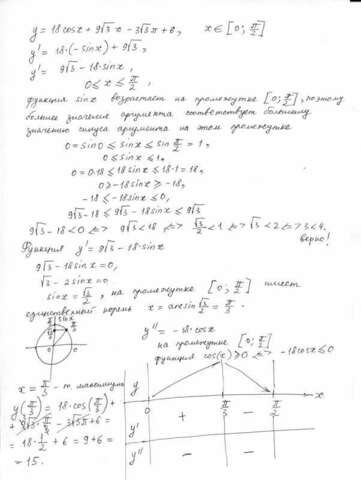 y = 18cosx + 9√3 x − 3√3 π + 6, x ∈ [0; π/2]
y' = 18·(−sinx) + 9√3,
y' = 9√3 − 18·sinx,
0 ≤ x ≤ π/2,
функция sinx возрастает на промежутке [0; π/2], поэтому
большее значение аргумента соответствует большему
значению синуса аргумента на этом промежутке
0 = sin0 ≤ sinx ≤ sin π/2 = 1,
0 ≤ sinx ≤ 1,
0 = 0·18 ≤ 18sinx ≤ 18·1 = 18,
0 ≥ −18sinx ≥ −18,
−18 ≤ −18sinx ≤ 0,
9√3 − 18 ≤ 9√3 − 18sinx ≤ 9√3
9√3 − 18 < 0 <=> 9√3 < 18 <=> √3/2 < 1 <=> √3 < 2 <=> 3 < 4.
верно!
Функция y' = 9√3 − 18·sinx
9√3 − 18sinx = 0,
√3 − 2sinx = 0
sinx = √3/2, на промежутке [0; π/2] имеет
единственный корень x = arcsin √3/2 = π/3.
y'' = −18·cosx
на промежутке [0; π/2]
функция cos(x) ≥ 0 <=> −18cosx ≤ 0
x = π/3 − т. максимума
y(π/3) = 18·cos(π/3) +
+ 9√3·π/3 − 3√3π + 6 =
= 18·1/2 + 6 = 9 + 6 =
= 15.
y
0 π/3 π/2 x
y' + −
y'' − −